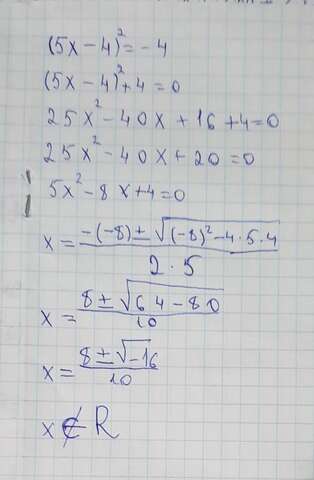 (5x-4)²=-4
(5x-4)²+4=0
25x²-40x+16+4=0
25x²-40x+20=0
5x²-8x+4=0
x=\frac{-(-8)±√((-8)²-4·5·4)}{2·5}
x=\frac{8±√(64-80)}{10}
x=\frac{8±√(-16)}{10}
x∉R